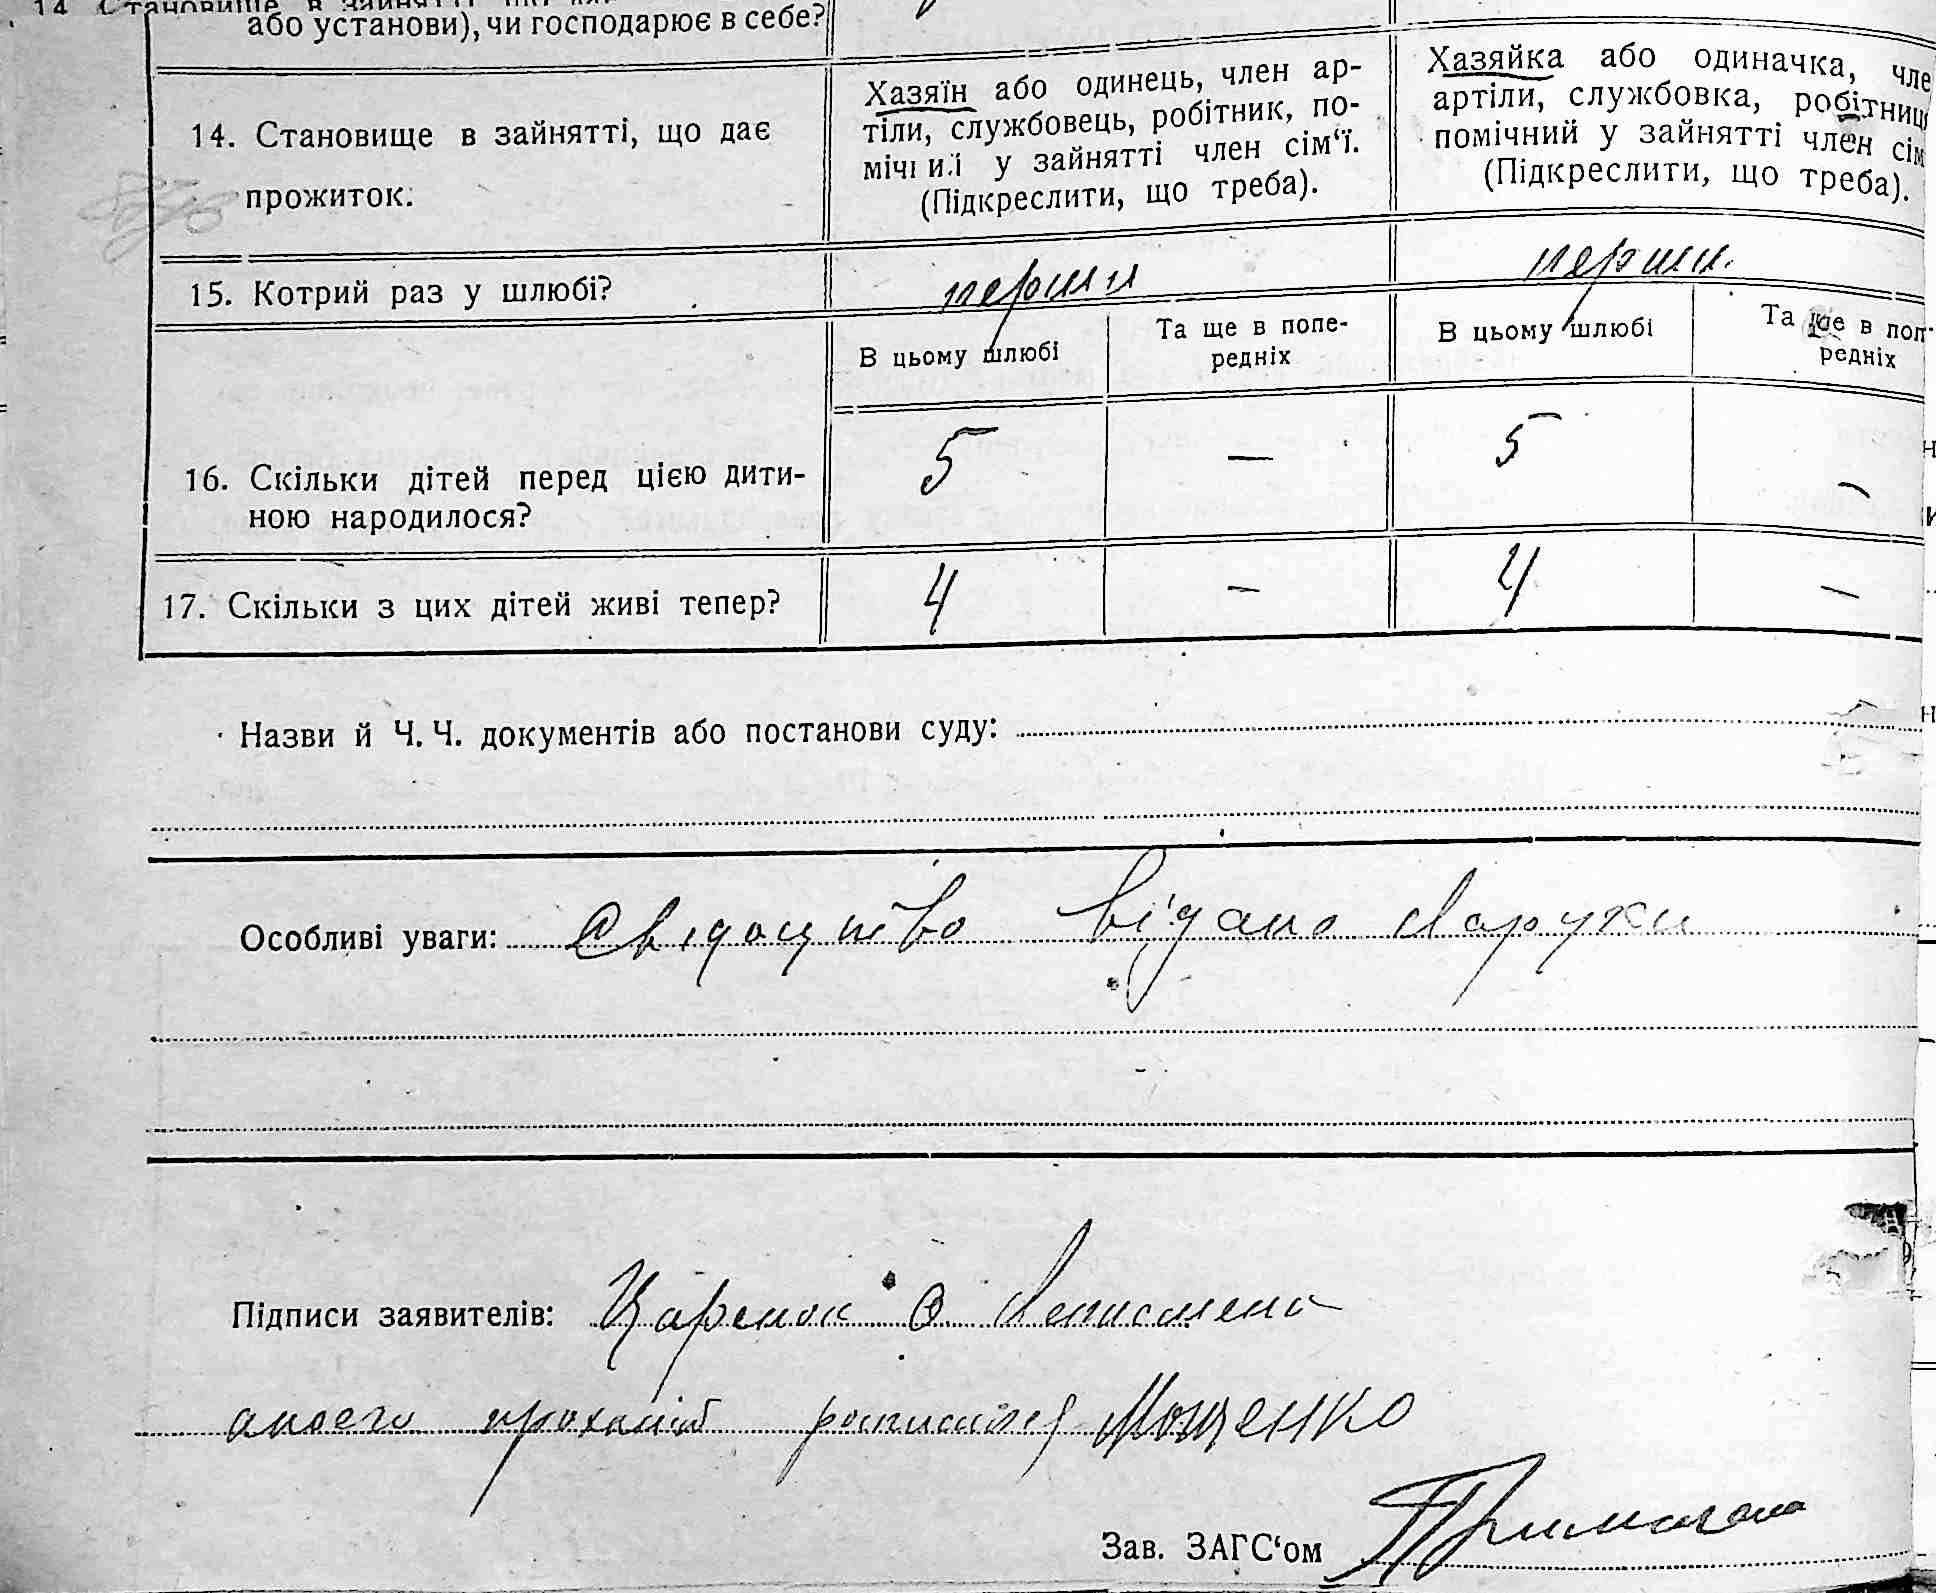 14. Становище в зайнятті
або установи), чи господарює в себе?
14. Становище в зайнятті, що дає
прожиток.
Хазяїн або одинець, член ар-
тіли, службовець, робітник, по-
мічний у зайнятті член сім‘ї.
(Підкреслити, що треба).
Хазяйка або одиначка, чле
артіли, службовка, робітниця
помічний у зайнятті член сім
(Підкреслити, що треба).
15. Котрий раз у шлюбі?
перши
перши.
В цьому шлюбі
Та ще в попе-
редніх
В цьому шлюбі
Та ще в поп
редніх
16. Скільки дітей перед цією дити-
ною народилося?
5 — 5 —
17. Скільки з цих дітей живі тепер?
4 — 4 —
Назви й Ч. Ч. документів або постанови суду:
Особливі уваги: Свідоцтво відано на руки
Підписи заявителів: Царенок О неписмена
проханію росписался Мощенко
Зав. ЗАГС‘ом